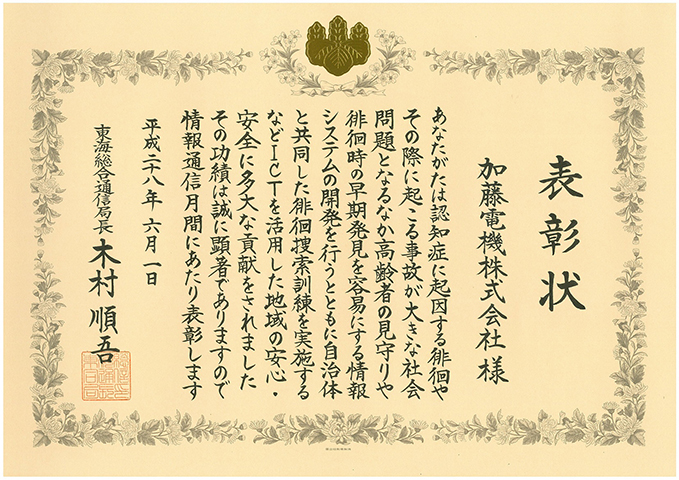 表彰状
加藤電機株式会社 様
あなたがたは認知症に起因する徘徊や
その際に起こる事故が大きな社会
問題となるなか高齢者の見守りや
徘徊時の早期発見を容易にする情報
システムの開発を行うとともに自治体
と共同した徘徊捜索訓練を実施する
などICTを活用した地域の安心・
安全に多大な貢献をされました
その功績は誠に顕著でありますので
情報通信月間にあたり表彰します
平成二十八年 六月一日
東海総合通信局長 木村 順吾